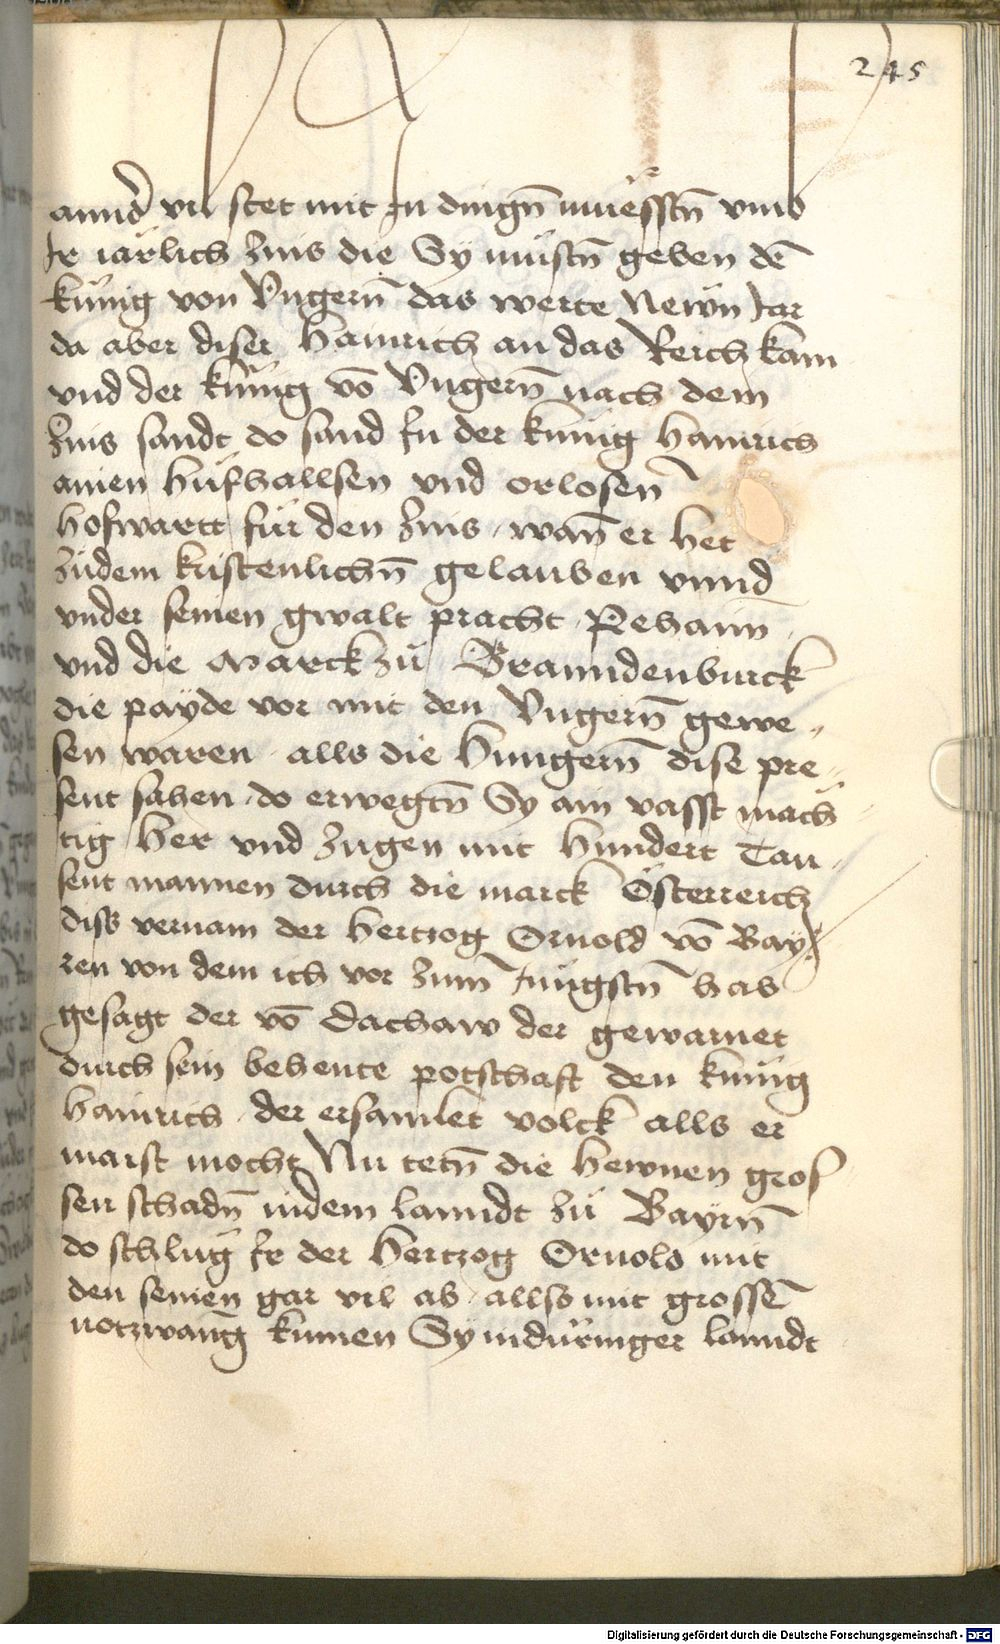 245
annd vil stet mit In dingn̄ muesstn̄ vmb
Ir iärlich zins die Sy mustn̄ geben dē
künig von Vngern̄ das werte Newn Iar
da aber diser Hainrich an das Reich kam
vnd der künig vō Vngern̄ nach dem
zins sandt do sand In der künig hainrich
ainen hüfhallsen vnd orlosen
hofwartt für den zins / wan̄ er het
züdem kristenlichn̄ gelauben vnnd
vnder seinen gwalt pracht Pehaim
vnd die Marck zü Branndenburck
die payde vor mit den Vngern̄ gewe„
sen waren alls die Hungern̄ dise pre„
sent sahen do erwegtn̄ Sy ain vasst mäch„
tig Her vnd Zugen mit Hundert Tau„
sent mannen durch die marck Österreich
diss vernam der Hertzog Ornold vō Bay
ren von dem ich vor zum Jungstn̄ hab
gesagt der vō Dachaw der gewarnet
durch sein behente potschaft den künig
Hainrich der ersamlet volck alls er
maist mocht Nu tetn̄ die hewnen gros
sen schadn̄ indem lanndt zü Bayrn̄
do schlüg Ir der Hertzog Ornold mit
den seinen gar vil ab allso mit grossē
notzwang kumen Sy indüringer lanndt
Digitalisierung gefördert durch die Deutsche Forschungsgemeinschaft - DFG